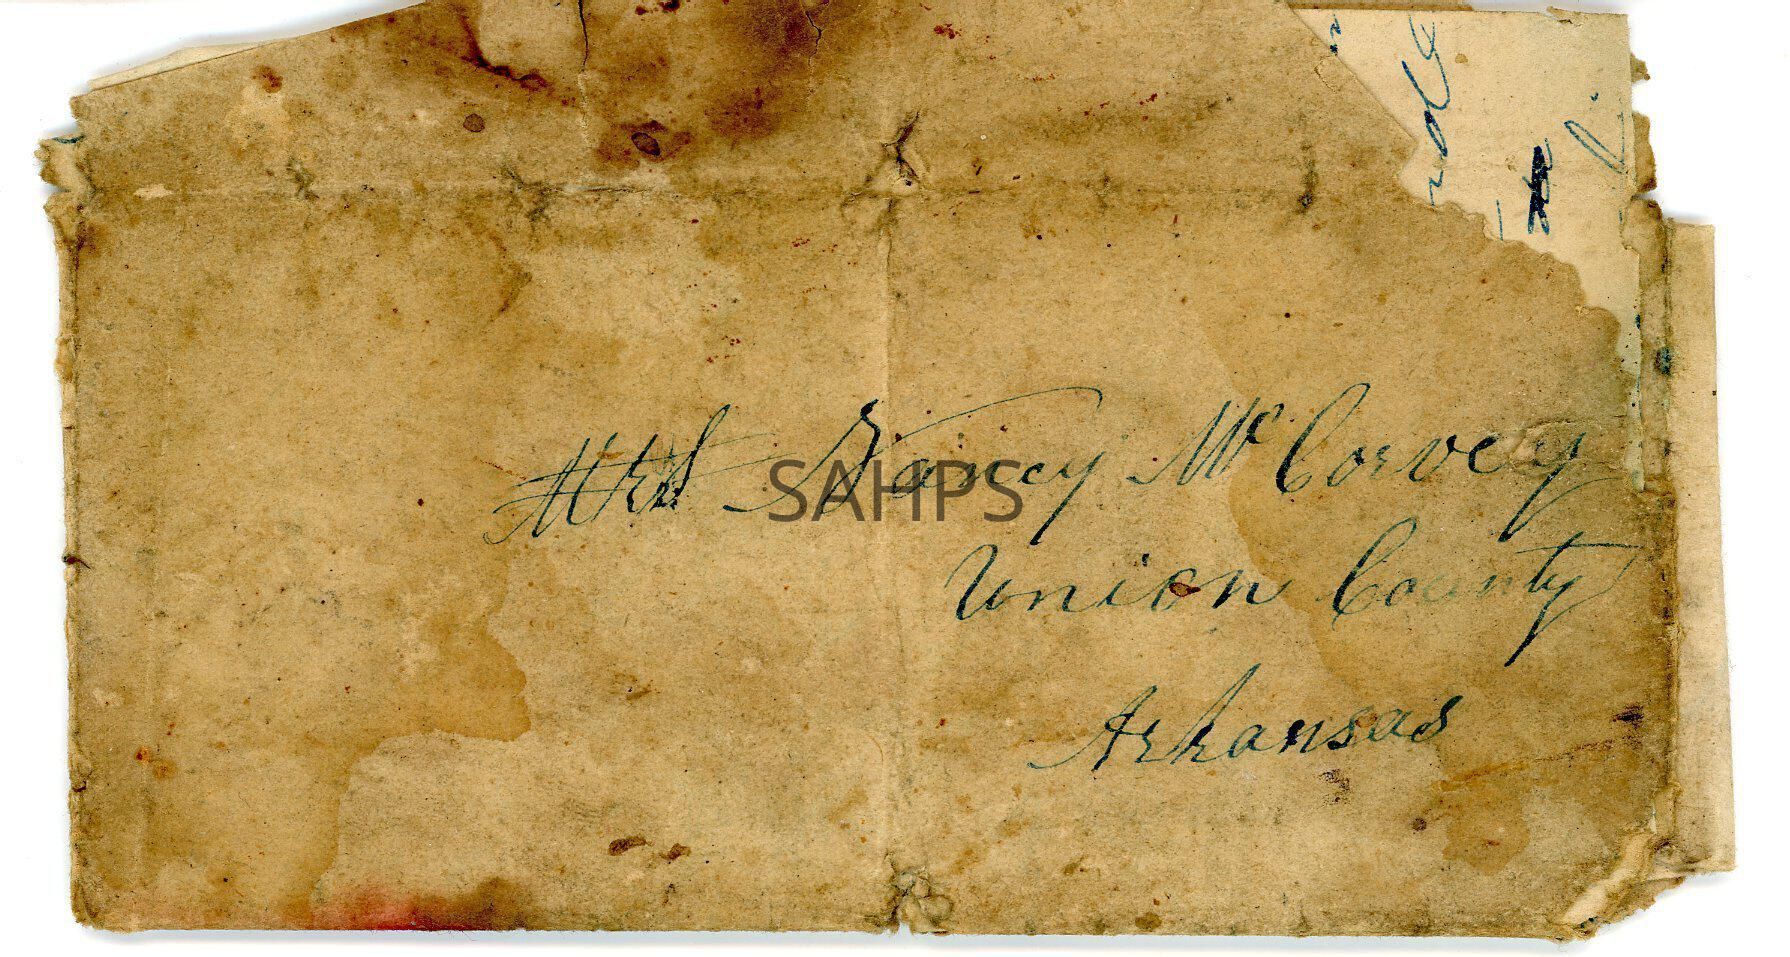 Mrs Nancy McCorvey
Union County
Arkansas
SAHPS